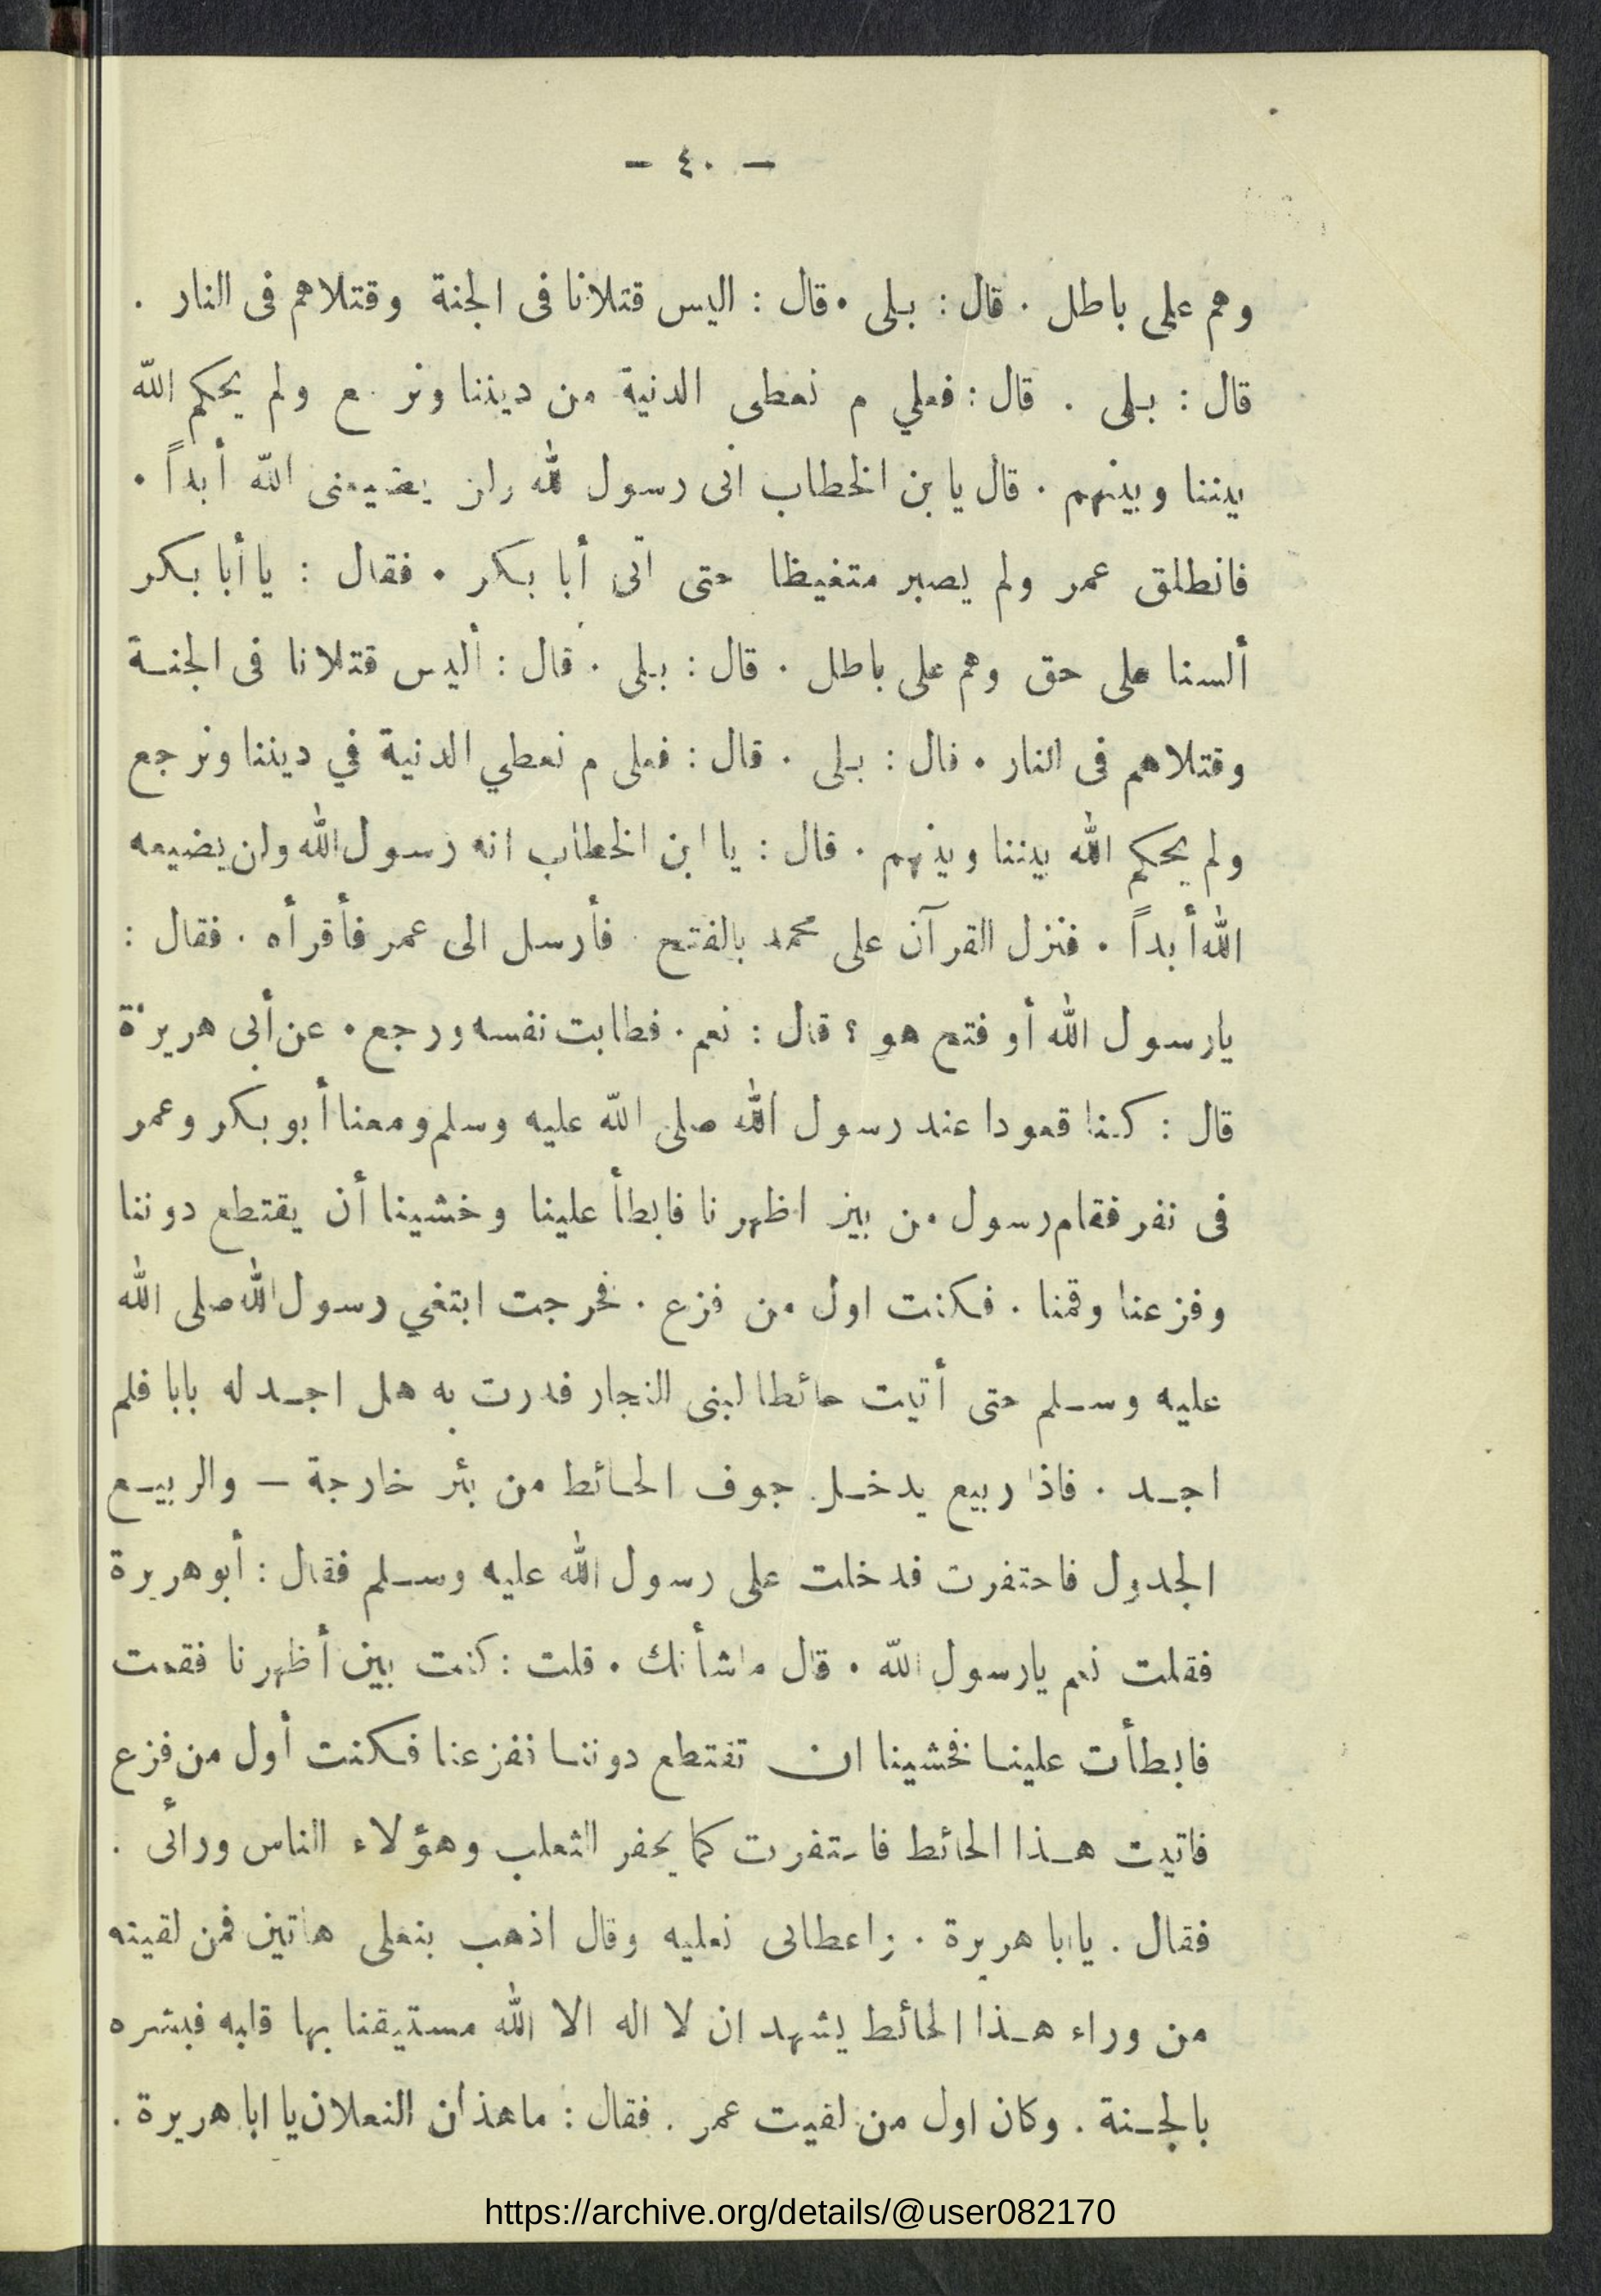 — ٤٠ —
وهم على باطل . قال : بلى . قال : اليس قتلانا فى الجنة وقتلاهم فى النار .
قال : بلى . قال : فعلي م نعطى الدنية من ديننا ونر ع ولم يحكم الله
بيننا وبينهم . قال يا بن الخطاب انى رسول لله ولن يضيعنى الله أبداً .
فانطلق عمر ولم يصبر متغيظا حتى اتى أبا بكر . فقال : يا أبا بكر
ألسنا على حق وهم على باطل . قال : بلى . قال : أليس قتلانا فى الجنة
وقتلاهم فى النار . قال : بلى . قال : فعلى م نعطي الدنية في ديننا ونرجع
ولم يحكم الله بيننا وبينهم . قال : يا ابن الخطاب انه رسول الله ولن يضيعه
الله أبداً . فنزل القرآن على محمد بالفتح . فأرسل الى عمر فأقرأه . فقال :
يارسول الله أو فتح هو ؟ قال : نعم . فطابت نفسه ورجع . عن أبى هريرة
قال : كنا قعودا عند رسول الله صلى الله عليه وسلم ومعنا أبو بكر وعمر
فى نفر فقام رسول من بين اظهرنا فابطأ علينا وخشينا أن يقتطع دوننا
وفزعنا وقمنا . فكنت اول من فزع . فخرجت ابتغي رسول الله صلى الله
عليه وسلم حتى أتيت حائطا لبنى النجار فدرت به هل اجد له بابا فلم
اجد . فاذا ربيع يدخل جوف الحائط من بئر خارجة — والربيع
الجدول فاحتفرت فدخلت على رسول الله عليه وسلم فقال : أبو هريرة
فقلت نعم يارسول الله . قال ماشأنك . قلت : كنت بين أظهرنا فقمت
فابطأت علينا فخشينا ان تفتطع دوننا نفزعنا فكنت أول من فزع
فاتيت هذا الحائط فاحتفرت كما يحفر الثعلب وهؤلاء الناس ورائى .
فقال . يا ابا هريرة . واعطانى نعليه وقال اذهب بنعلى هاتين فمن لقيته
من وراء هذا الحائط يشهد ان لا اله الا الله مستيقنا بها قلبه فبشره
بالجنة . وكان اول من لقيت عمر . فقال : ماهذان النعلان يا ابا هريرة .
https://archive.org/details/@user082170